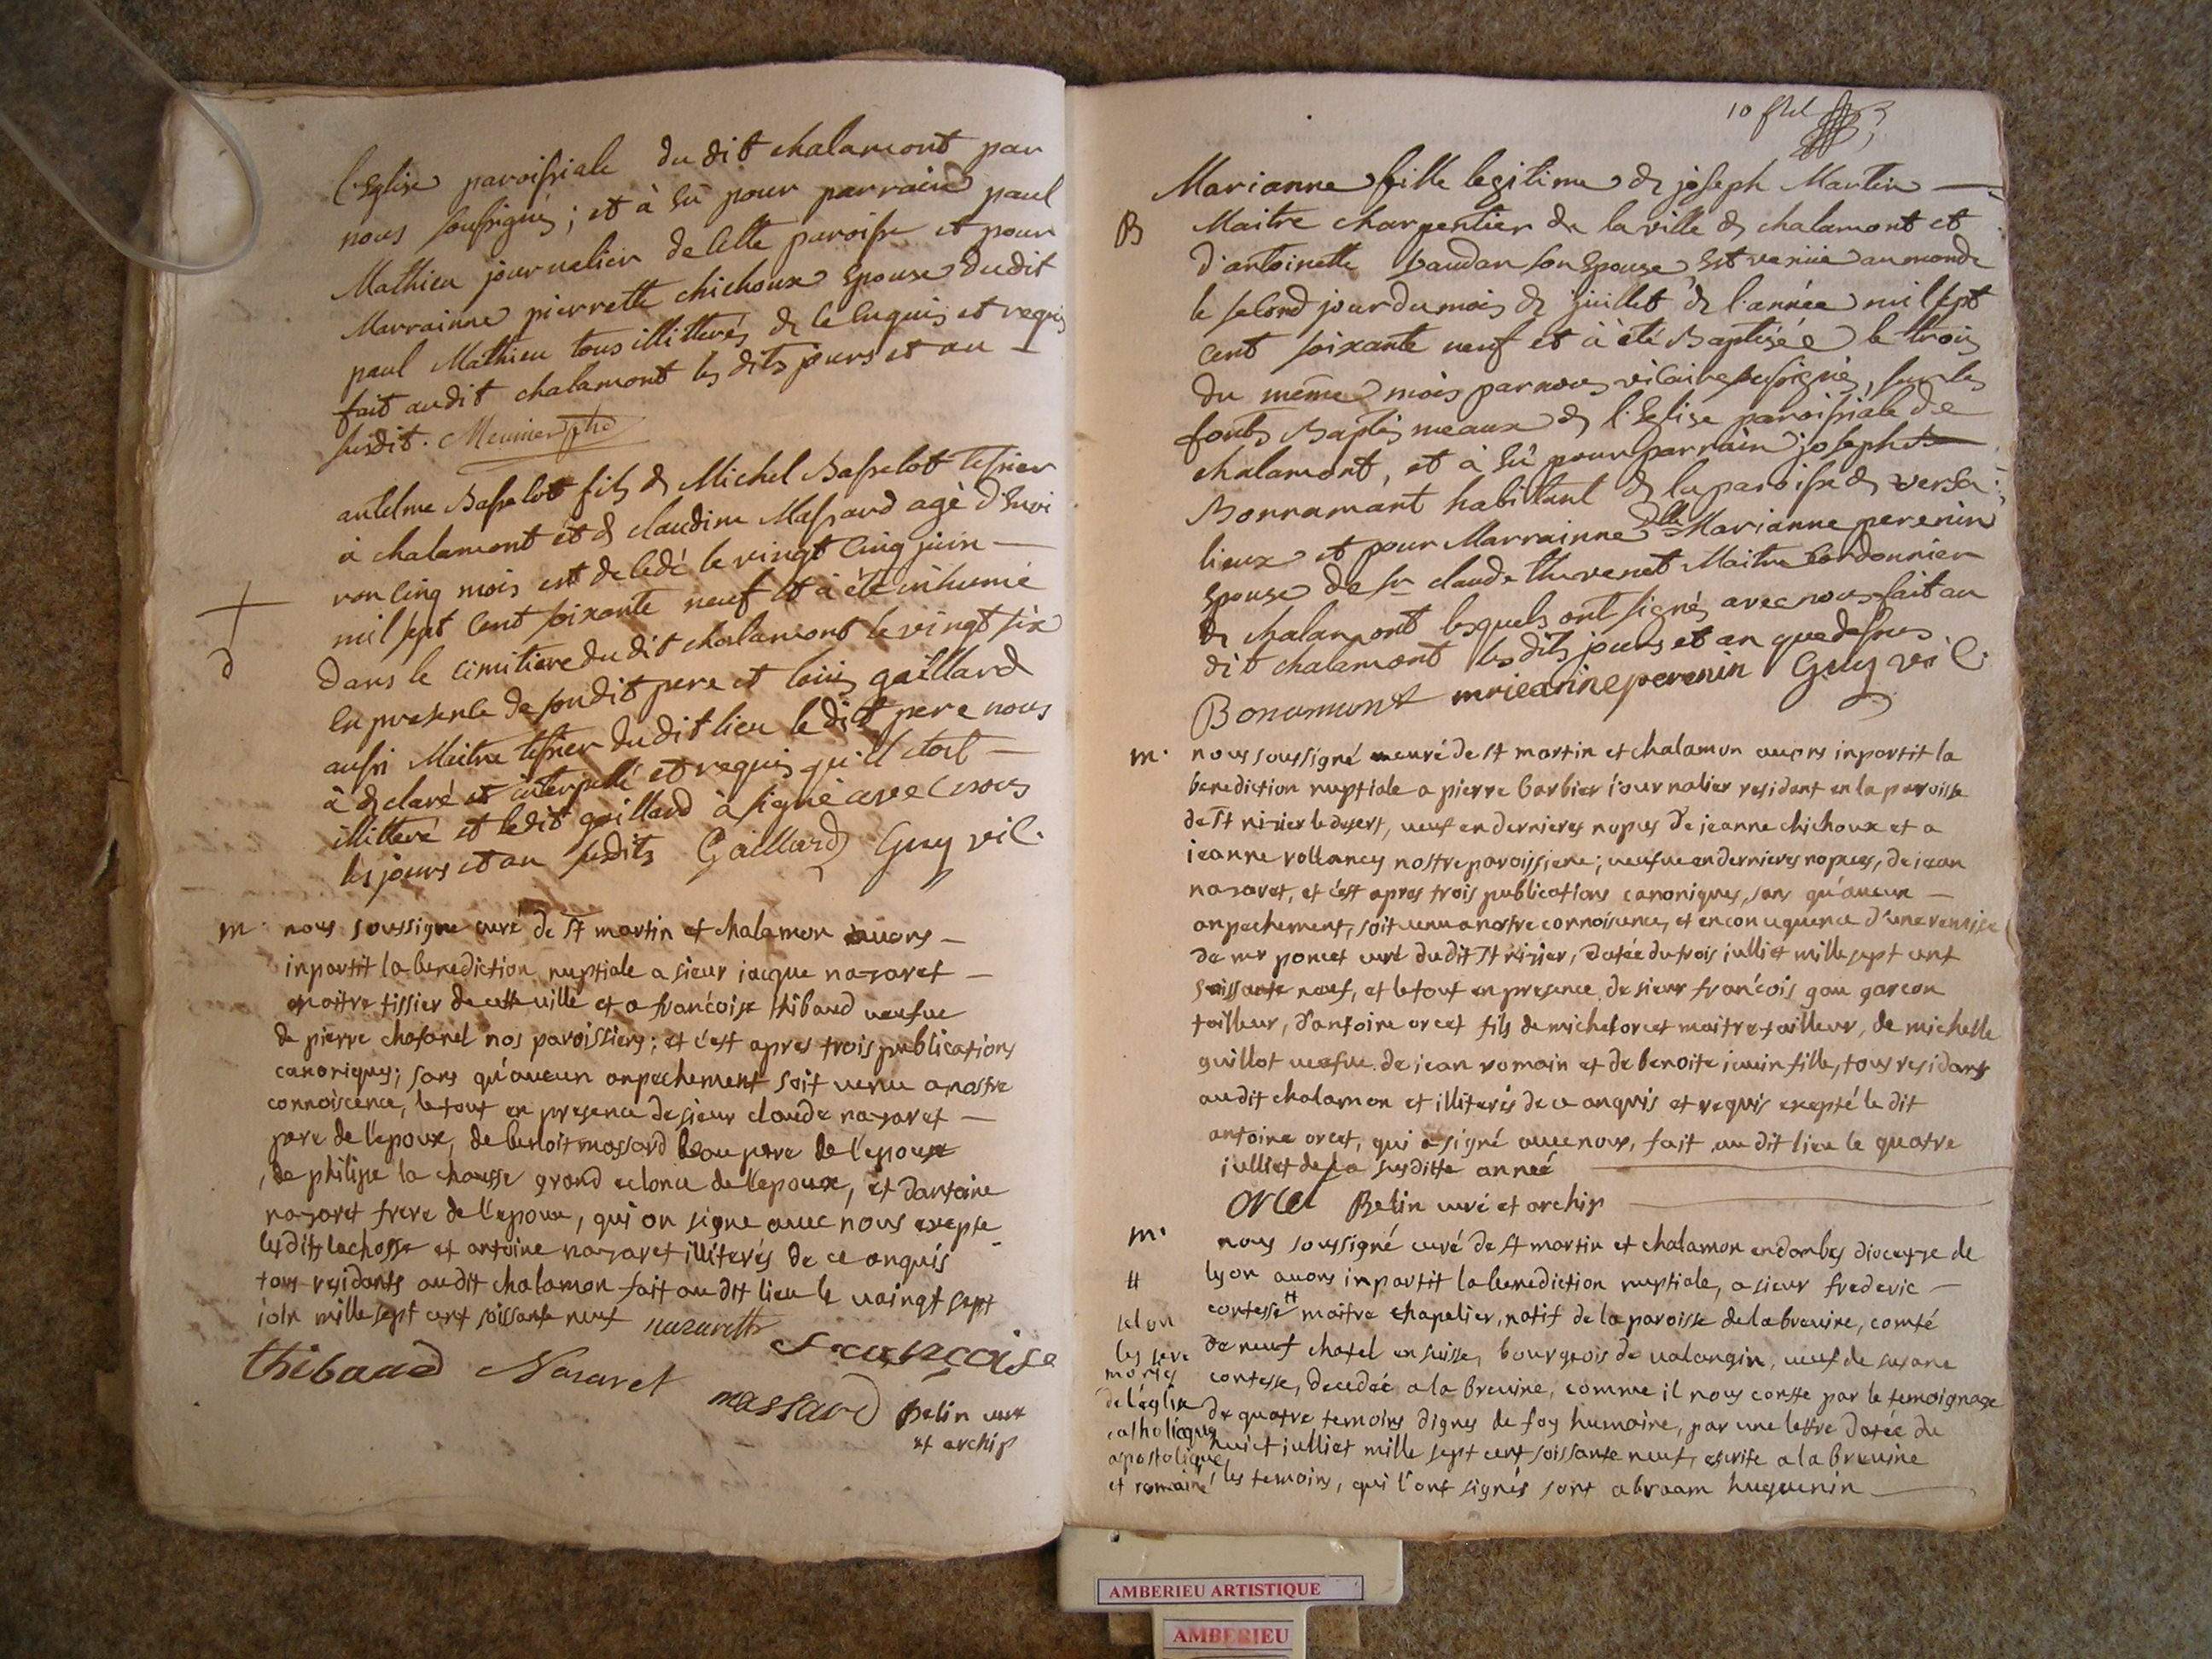 l'Eglise paroissiale du dit chalamont par
nous soussignés ; et à Eû pour parrain paul
Mathieu journalier de cette paroisse et pour
Marrainne pierrette chichoux Epouse dudit
paul Mathieu tous illitterés de ce enquis et requis
fait audit chalamont les dits jours et an
susdit. Meunier ptre
antelme Basselot fils de Michel Basselot tessier
à chalamont et de claudine Massard agè d'envi
ron cinq mois est decedé le vingt cinq juin
mil sept cent soixante neuf et à été inhumé
d
dans le cimitiere du dit chalamont le vingt six
en presence de son dit pere et louis gaillard
aussi Maitre tessier du dit lieu le dit pere nous
à declaré et interpellé et requis qu'il etoit
illitteré et ledit gaillard à signé avec nous
les jours et an susdits Gaillard Guy vic.
m. nous soussigné curé de st martin et chalamon auons
inpartit la benediction nuptiale a sieur iacque nazaret
maitre tissier de cette ville et a francoise thibaud ueufue
de pierre chatanel nos paroissiens ; et c'est apres trois publications
canoniques ; sans qu'aucun anpechement soit uenu a nostre
connoiscence, le tout en presence de sieur claude nazaret
pere de l'epoux, de benoit massard beau pere de l'epoux
, de philipe la chausse grand oclonce de l'epoux, et dantoine
nazaret frere de l'epoux, qui on signe auec nous exepte
lesdits lachosse et antoine nazaret illiterés de ce anquis
tous residants audit chalamon fait au dit lieu le uaingt sept
ioin mille sept cent soissante neuf nazareth
francoise
thibaud Nazaret massard Belin curé
et archip
10
Marianne fille legitime de joseph Martin
B Maitre charpentier de la ville de chalamont et
d'antoinette vaudan son Epouse Est venüe au monde
le second jour du mois de juillet de l'année mil sept
cent soixante neuf et à été Baptisée le trois
du même mois par nous vicaire soussigné, sur les
fonts Baptismeaux de l'Eglise paroissiale de
chalamont, et à Eû pour parrain joseph
Bonnamant habitant de la paroisse de versa
lieux et pour Marrainne dlle Marianne perenin
Epouse de sr claude thevenet Maitre Cordonnier
de chalamont lesquels ont signés avec nous fait au
dit chalamont les dits jours et an que dessus
Bonamant marieanne perenin Guy vic.
m. nous soussigné curé de st martin et chalamon auons inpartit la
benediction nuptiale a pierre barbier iournalier residant en la paroisse
de st nizier le desert, ueuf en dernieres nopces de jeanne chichoux et a
jeanne rollancy nostre paroissiene ; ueufue en dernieres nopces, de iean
nazaret, et c'est apres trois publications canoniques, sans qu'aucun
anpechement, soit uenu a nostre connoisence, et en consequence d'une remise
de mr poncet curé du dit st nizier, datée du trois iulliet mille sept cent
soissante neuf, et le tout en presence de sieur francois gau garcon
tailleur, d'antoine orcet fils de michel orcet maitre tailleur, de michelle
guillot ueufue de jean romain et de benoite fille, tous residants
audit chalamon et illiterés de ce anquis et requis exepté le dit
antoine orcet, qui a signé auec nous, fait au dit lieu le quatre
iulliet de la susditte année
orcet Belin curé et archip
m. nous soussigné curé de st martin et chalamon en dombes diocesse de
lyon auons inpartit la benediction nuptiale, a sieur frederic
contesse # maitre chapelier, natif de la paroisse de la breuine, comté
de neuf chatel en suisse, bourgeois de ualangin, ueuf de susane
contesse, decedée a la breuine, comme il nous conste par le temoignage
de quatre temoins dignes de foy humaine, par une lettre datée du
huict iulliet mille sept cent soissante neuf, escrite a la breuine
les temoins, qui l'ont signés sont abraam huguenin
#
selon
les sere
monies
de l'eglise
catholique
apostolique
et romaine
AMBERIEU ARTISTIQUE
AMBERIEU